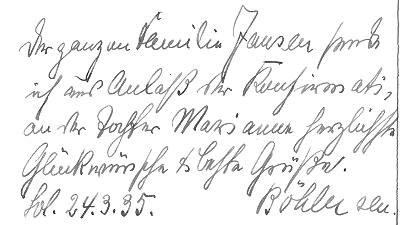 Der ganzen Familie Jansen sende
ich aus Anlaß der Konfirmati-
on der Tochter Marianne herzlichste
Glückwünsche & beste Grüße.
24.3.35. Böhler sen.